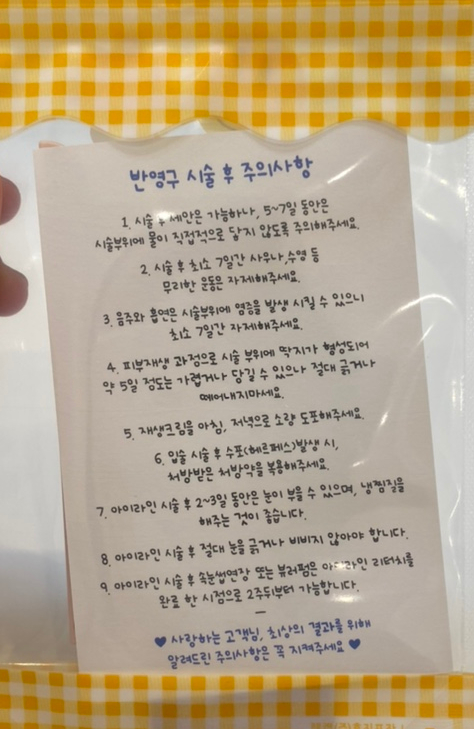 반영구 시술 후 주의사항
1. 시술 후 세안은 가능하나, 5~7일 동안은
시술부위에 물이 직접적으로 닿지 않도록 주의해주세요.
2. 시술 후 최소 7일간 사우나,수영 등
무리한 운동은 자제해주세요.
3. 음주와 흡연은 시술부위에 염증을 발생 시킬 수 있으니
최소 7일간 자제해주세요.
4. 피부재생 과정으로 시술 부위에 딱지가 형성되어
약 5일 정도는 가렵거나 당길 수 있으나 절대 긁거나
떼어내지마세요.
5. 재생크림을 아침, 저녁으로 소량 도포해주세요.
6. 입술 시술 후 수포(헤르페스)발생 시,
처방받은 처방약을 복용해주세요.
7. 아이라인 시술 후 2~3일 동안은 눈이 부을 수 있으며, 냉찜질을
해주는 것이 좋습니다.
8. 아이라인 시술 후 절대 눈을 긁거나 비비지 않아야 합니다.
9. 아이라인 시술 후 속눈썹연장 또는 뷰러펌은 아이라인 리터치를
완료 한 시점으로 2주뒤부터 가능합니다.
사랑하는 고객님, 최상의 결과를 위해
알려드린 주의사항은 꼭 지켜주세요